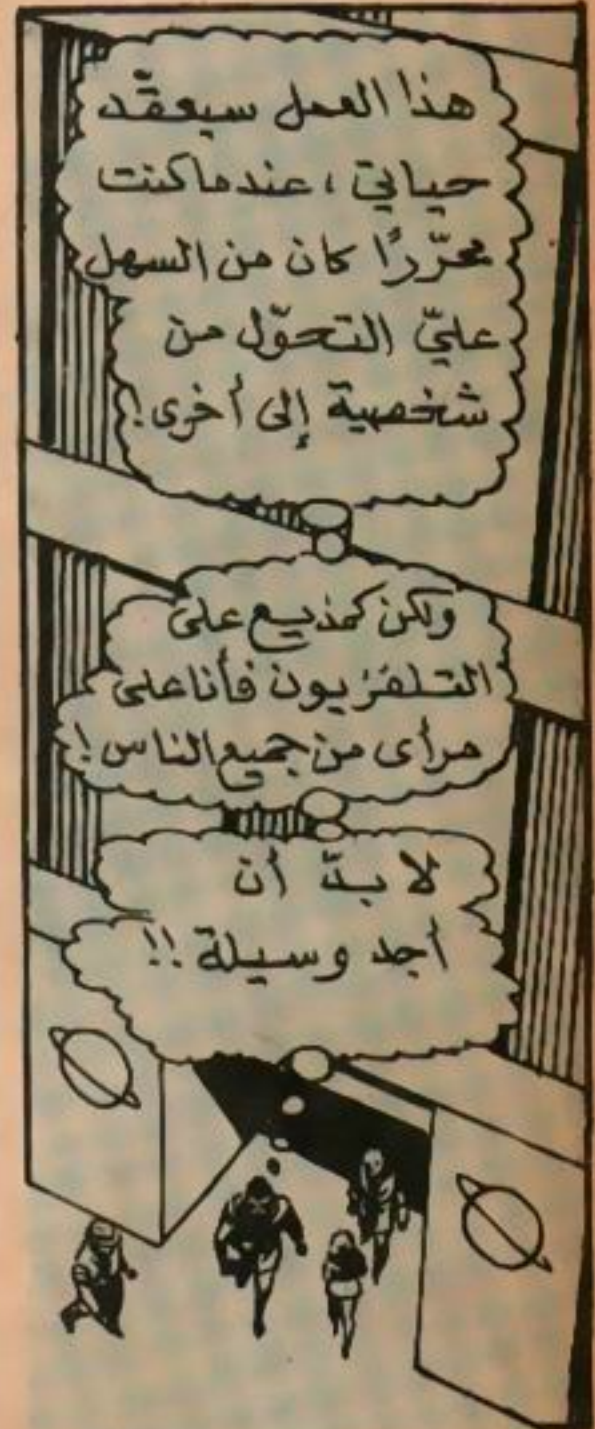 هذا العمل سيعقّد
حياتي ، عندما كنت
محرّرًا كان من السهل
عليّ التحوّل من
شخصية إلى أخرى!
ولكن كمذيع على
التلفزيون فأنا على
مرأى من جميع الناس!
لا بدّ أن
أجد وسيلة!!